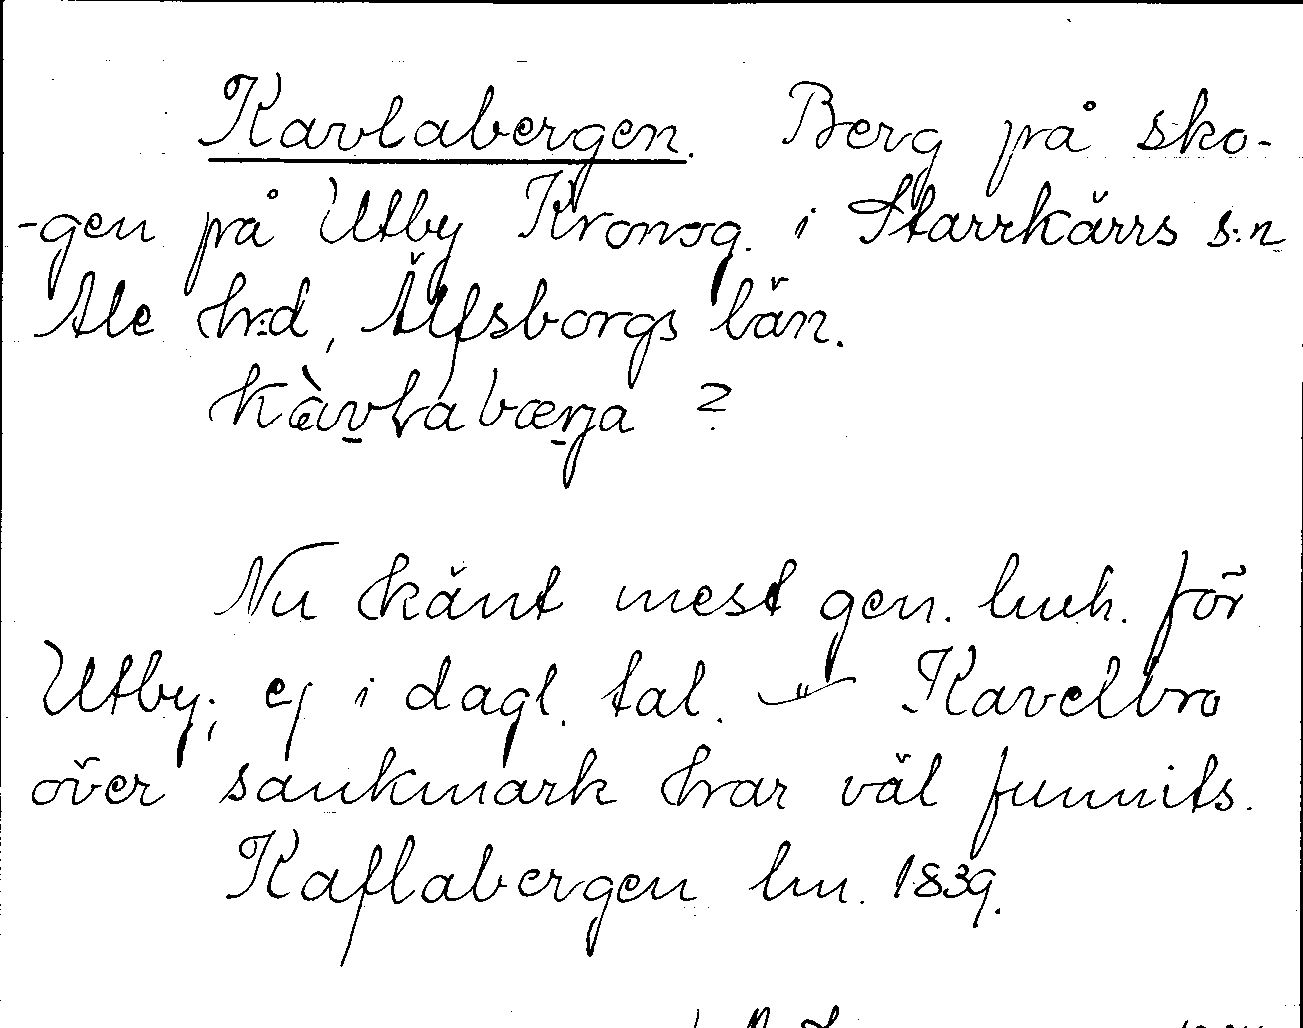 Kavlabergen. Berg på sko-
-gen på Utby Kronog. i Starrkärrs s:n
Ale h:d, Älfsborgs län.
kàvlabærja ?
Nu känt mest gen. lmh. för
Utby; ej i dagl. tal. –"– Kavelbro
över sankmark har väl funnits.
Kaflabergen lm. 1839.